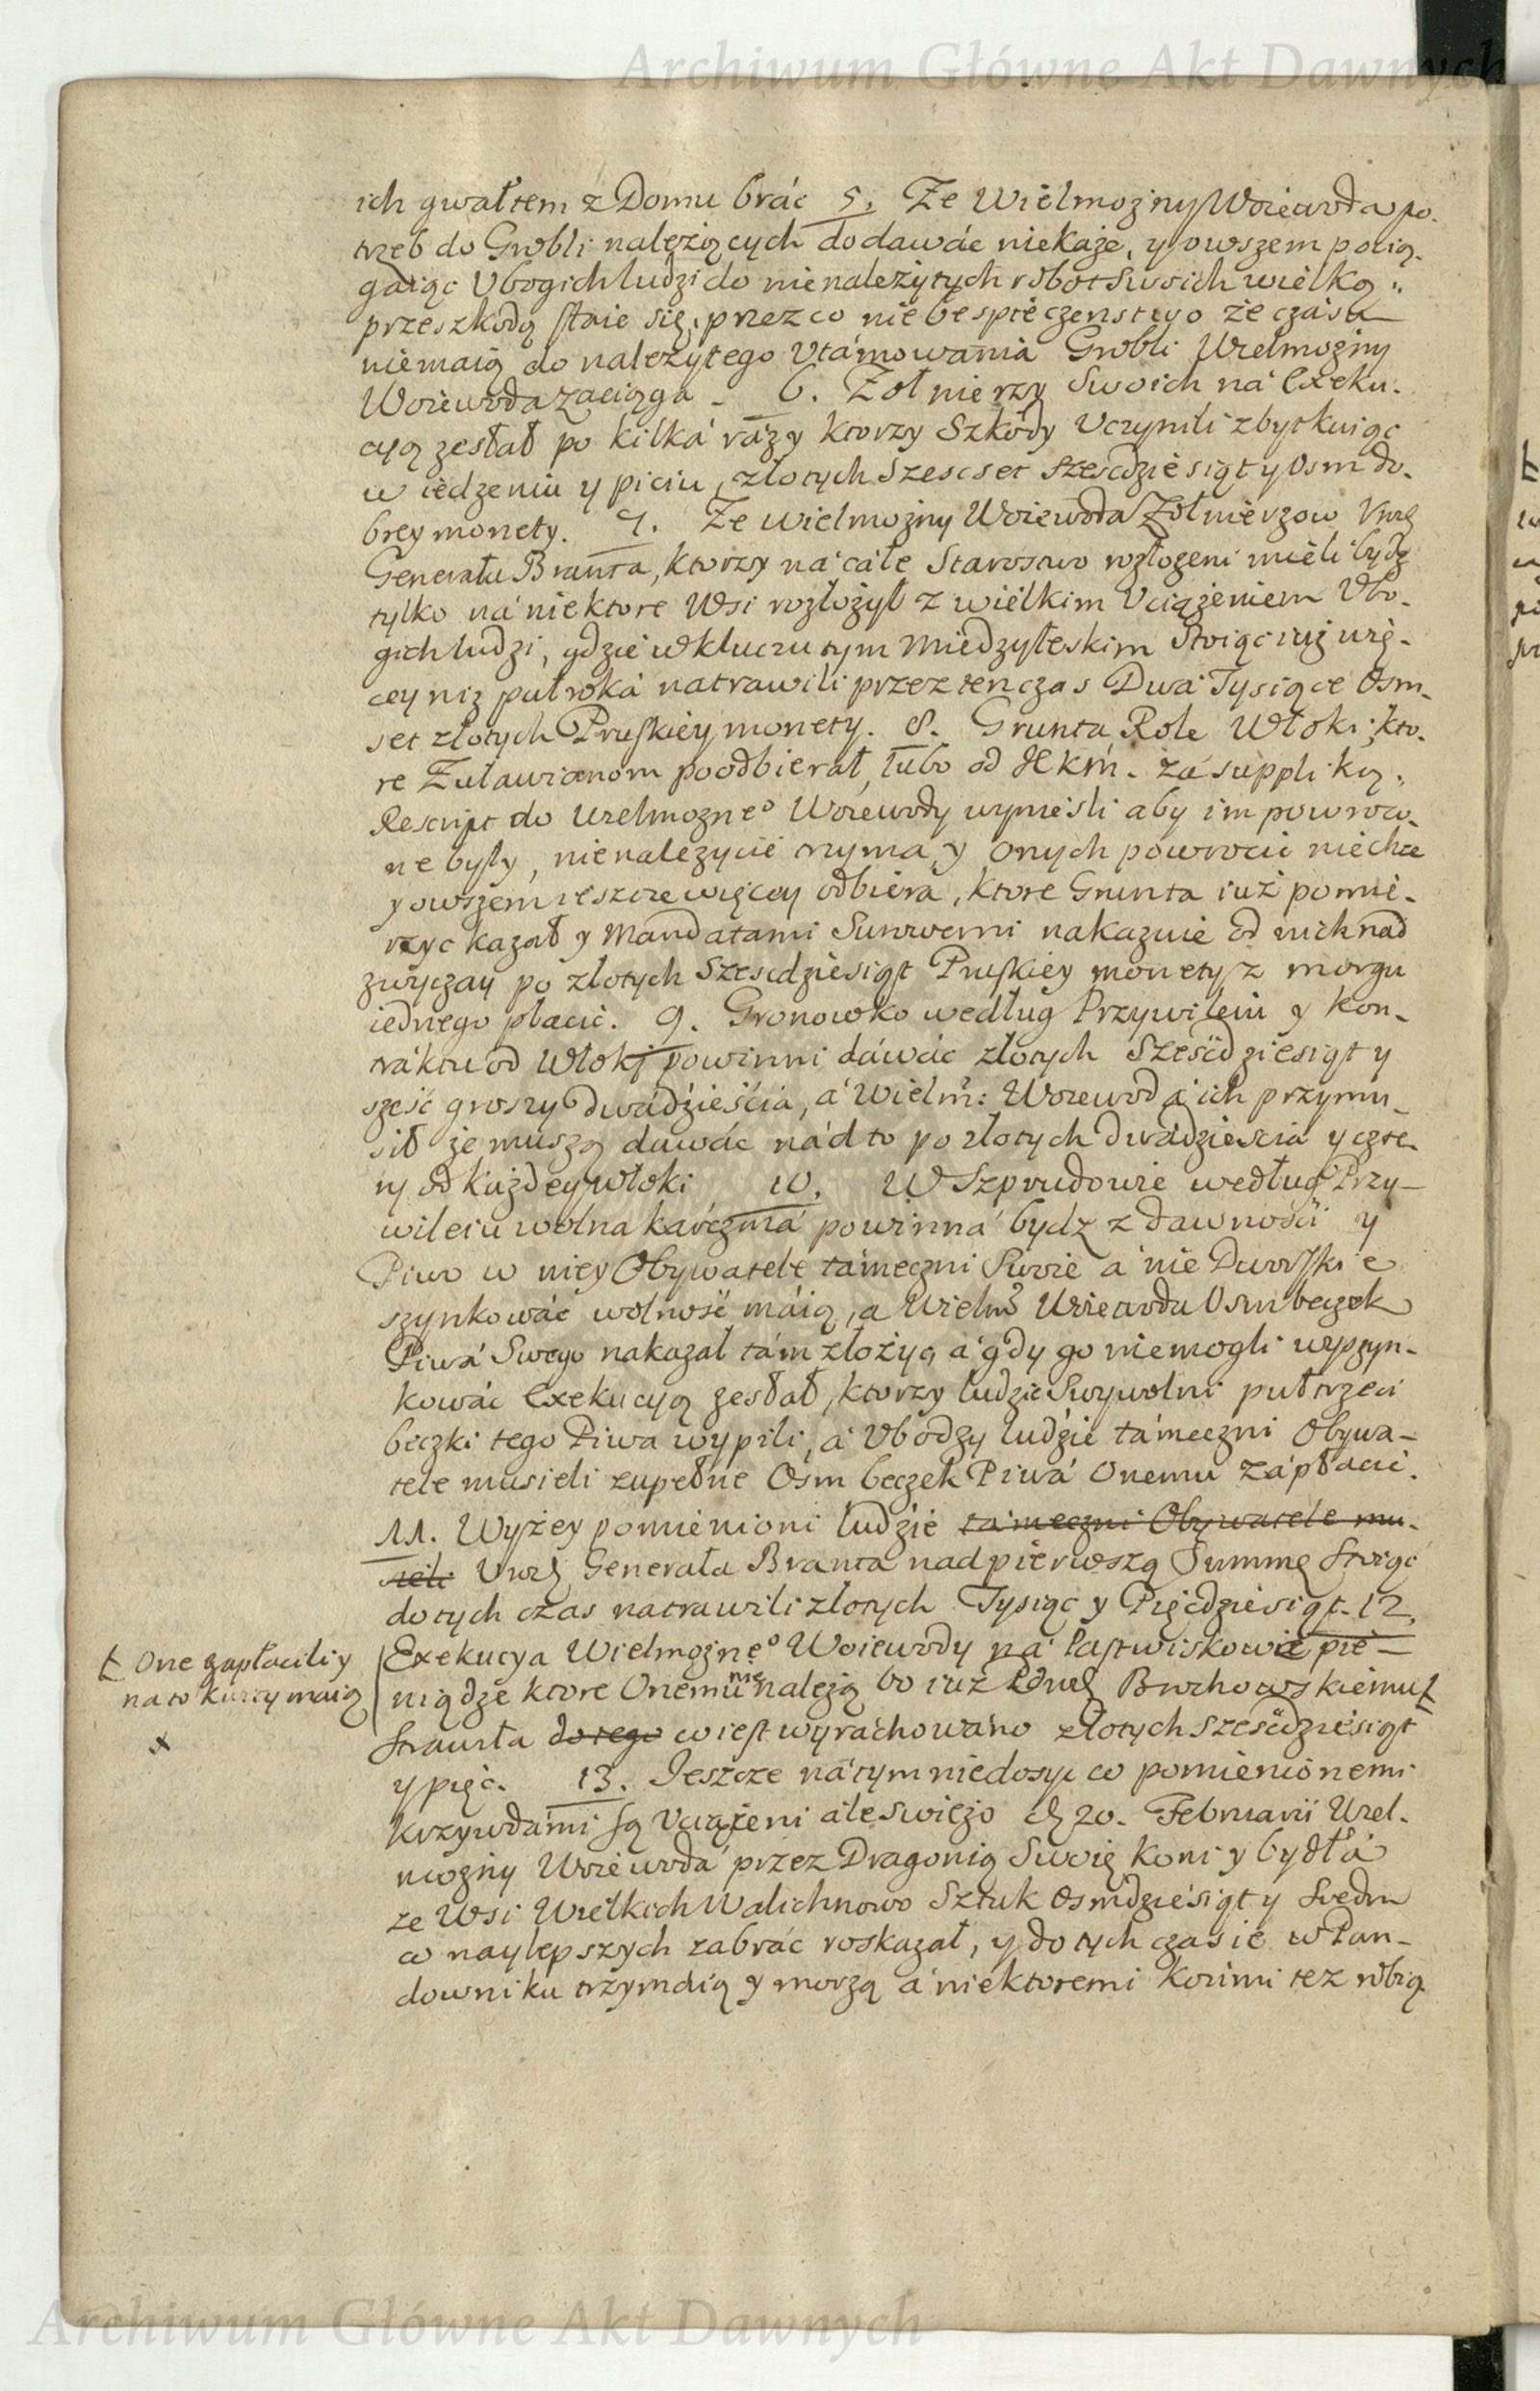 Archiwum Główne Akt Dawnych
ich gwałtem z Domu bráć 5. Ze Wielmożny Woiewoda po-
trzeb do Grobli należących dodawáć niekaże, y owszem pocią-
gaiąc Vbogich ludzi do nienależytych robot Swoich wielką
przeszkodą staie się, przez co niebespieczenstwo że czásu
niemaią do należytego Vtámowania Grobli Wielmożny
Woiewoda zaciąga. 6. Zołnierzy Swoich ná Exeku-
cyą zesłał po kilká rázy ktorzy Szkody Vczynili zbytkuiąc
w iedzeniu y piciu, złotych Szescset szescdziesiąt y Osm do-
brey monety. 7. Ze wielmożny Woiewoda Zołnierzow Vrodz
Generała Branta, ktorzy ná cáłe Starostwo rozłożeni mieli bydz
tylko ná niektore Wsi rozłożył z wielkim Vciążeniem Vbo-
gich ludzi, gdzie w kluczu tym Miedzyłeskim Stoiąc iuż wię-
cey niz puł roká natrawili przez ten czas Dwá Tysiące Osm-
set złotych Pruskiey monety. 8. Grunta, Role Włoki, kto-
re Zuławianom poodbierał, lubo od JEKM. zá suppliką
Rescript do Wielmozne° Woiewody wynieśli aby im powroco-
ne były, nienależycie trzyma, y onych powrocić niechce
y owszem ieszcze więcey odbiera, ktore Grunta iuż pomie-
rzyc kazał y Mandatami Surowemi nakazuie od nich nad
zwyczay po złotych Szescdziesiąt Pruskiey monety z morgu
iednego płacić. 9. Gronowko według Przywileiu y Kon-
tráktu od Włoki powinni dáwáć złotych Sześćdziesiąt y
sześć groszy dwádzieścia, á Wielm: Woiewodá ich przymu-
sił że muszą dawáć nádto po złotych dwádziescia y czte-
ry od każdey włoki 10. W Szprudowie według Przy-
wileiu wolna kárczmá powinná bydz z dawności y
Piwo w niey Obywatele támeczni Swoie á nie Dworskie
szynkowáć wolność máią, a Wielm Woiewoda Osm beczek
Piwá Swego nakazał tám złożyć, á gdy go niemogli wyszyn-
kowáć Exekucyą zesłał, ktorzy ludzie Swywolni puł trzeci
beczki tego Piwa wypili, á Vbodzy ludźie támeczni Obywa-
tele musieli zupełne Osm beczek Piwá Onemu zápłacić.
11. Wyżey pomienioni ludźie támeczni Obywatele mu-
sieli Vrodz Generała Branta nad pierwszą Summę Stoiąc
do tych czas natrawili złotych Tysiąc y Pięćdziesiąt. 12.
Exekucya Wielmożne° Woiewody ná Pastwiskowie pie-
niądze ktore Onemu nie należą bo iuż Vrodz Buchowskiemu
One zapłacili y
na to kwity maią
Strawiła do tego co iest wyráchowáno złotych Sześćdziesiąt
y pięć. 13. Ieszcze ná tym niedosyć co pomienionemi
krzywdámi są Vciążeni ale swieżo d. 20. Februarii Wiel-
możny Woiewodá przez Dragonią Swoię koni y bydłá
ze Wsi Wielkich Walichnowo Sztuk Osmdziesiąt y Siedm
co naylepszych zabráć roskazał, y do tych czas ie w Pan-
downiku trzymáią y morzą á niektoremi końmi tez robią
Archiwum Główne Akt Dawnych